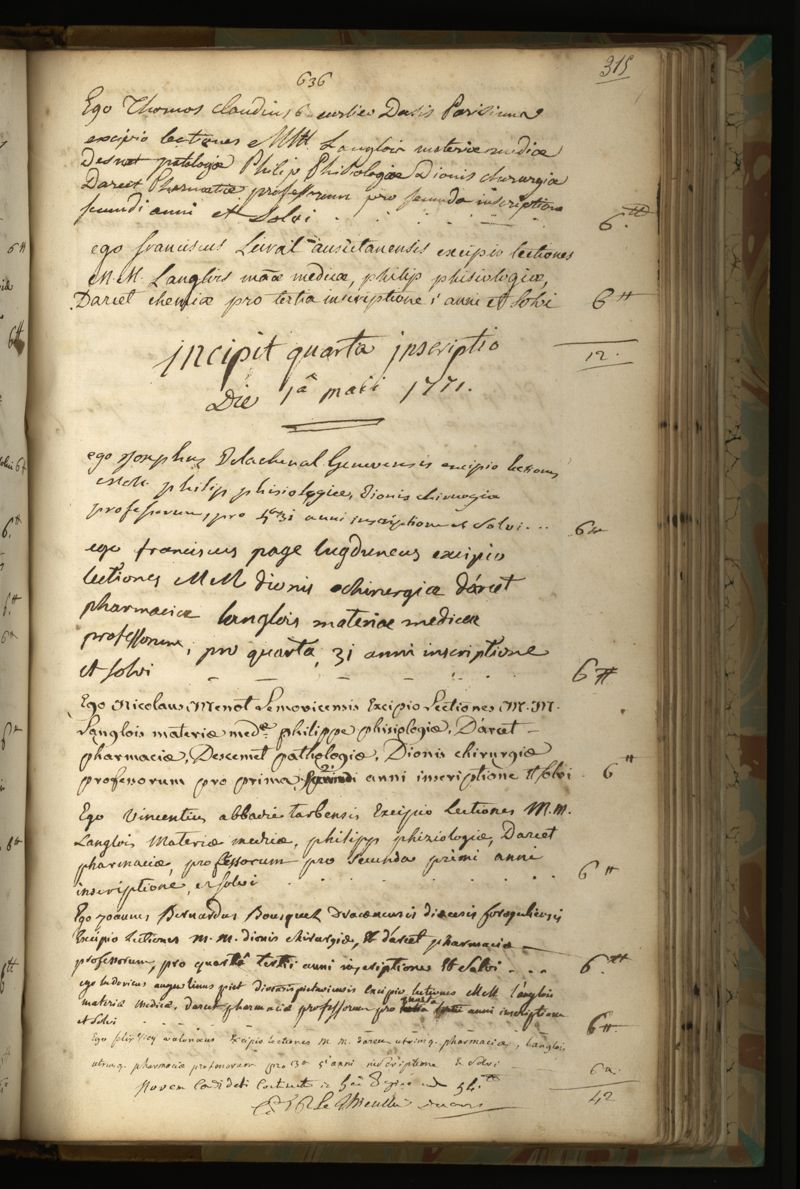 636
315
Ego Thomas Claudius Dasis Parisinus
excipio lectiones MM Langlois materiæ medicæ
Desmet patologiæ Philip Phisiologiæ Dionis chirurgiæ
Darcet Pharmaciæ professorum pro secunda inscriptione
secundi anni et Solvi . . . . . 6.tt
ego franciscus auscitanensis excipio lectiones
M.M. Langlois maæ medicæ, philip phisiologiæ,
Darcet chemiæ pro tertia inscriptione 1 anni et solvi 6tt
12.
incipit quarta inscriptio
Die 1a maii 1771.
ego Josephus Delachenal Genevensis excipio lectiones
MM. philip phisiologiæ, Dionis chirurgiæ
professorum, pro anni inscriptione et Solvi... 6tt
ego franciscus page lugduneus excipio
lectiones MM dionis chirurgiæ d'arcet
pharmaciæ langlois materiæ medicæ
professorum, pro quarta, 3i anni inscriptione
et solvi 6tt
Ego Nicolaus Menot Lemovicensis Excipio Lectiones M.M.
Langlois materiæ medæ philippe phisiologiæ, D'arcet
pharmaciæ, Descemet pathologiæ, Dionis chirurgiæ
professorum pro prima 2i anni inscriptione et solvi . 6tt
Ego Vincentius abbadie tarbensis Excipio Lectiones M.M.
Langlois Materiæ medicæ, philipp phiziologiæ, Darcet
pharmaciæ, professorum pro Secunda primi anni
inscriptione, et solvi . . . . . 6tt
Ego Joannes Bernardus Bousquet Dracænensis diæcesis forojuliensis
Excipio Lectiones M.M. dionis chirurgiæ, Et d'arcet pharmaciæ
professorum, pro quarta tertii anni inscriptione Et Solvi . . . 6.tt
ego ludovicus augustinus piet diocesis pictaviensis Excipio lectiones MM l'anglois
materiæ medicæ, darcet pharmaciæ professorum pro quarta anni inscriptione
et solvi 6tt
Ego Excipio lectiones M.M. darcet utriusq. pharmaciæ, langlois
utriusq. pharmacia professorum pro 3a anni inscriptione & solvi 6tt
Novem Candidati
42